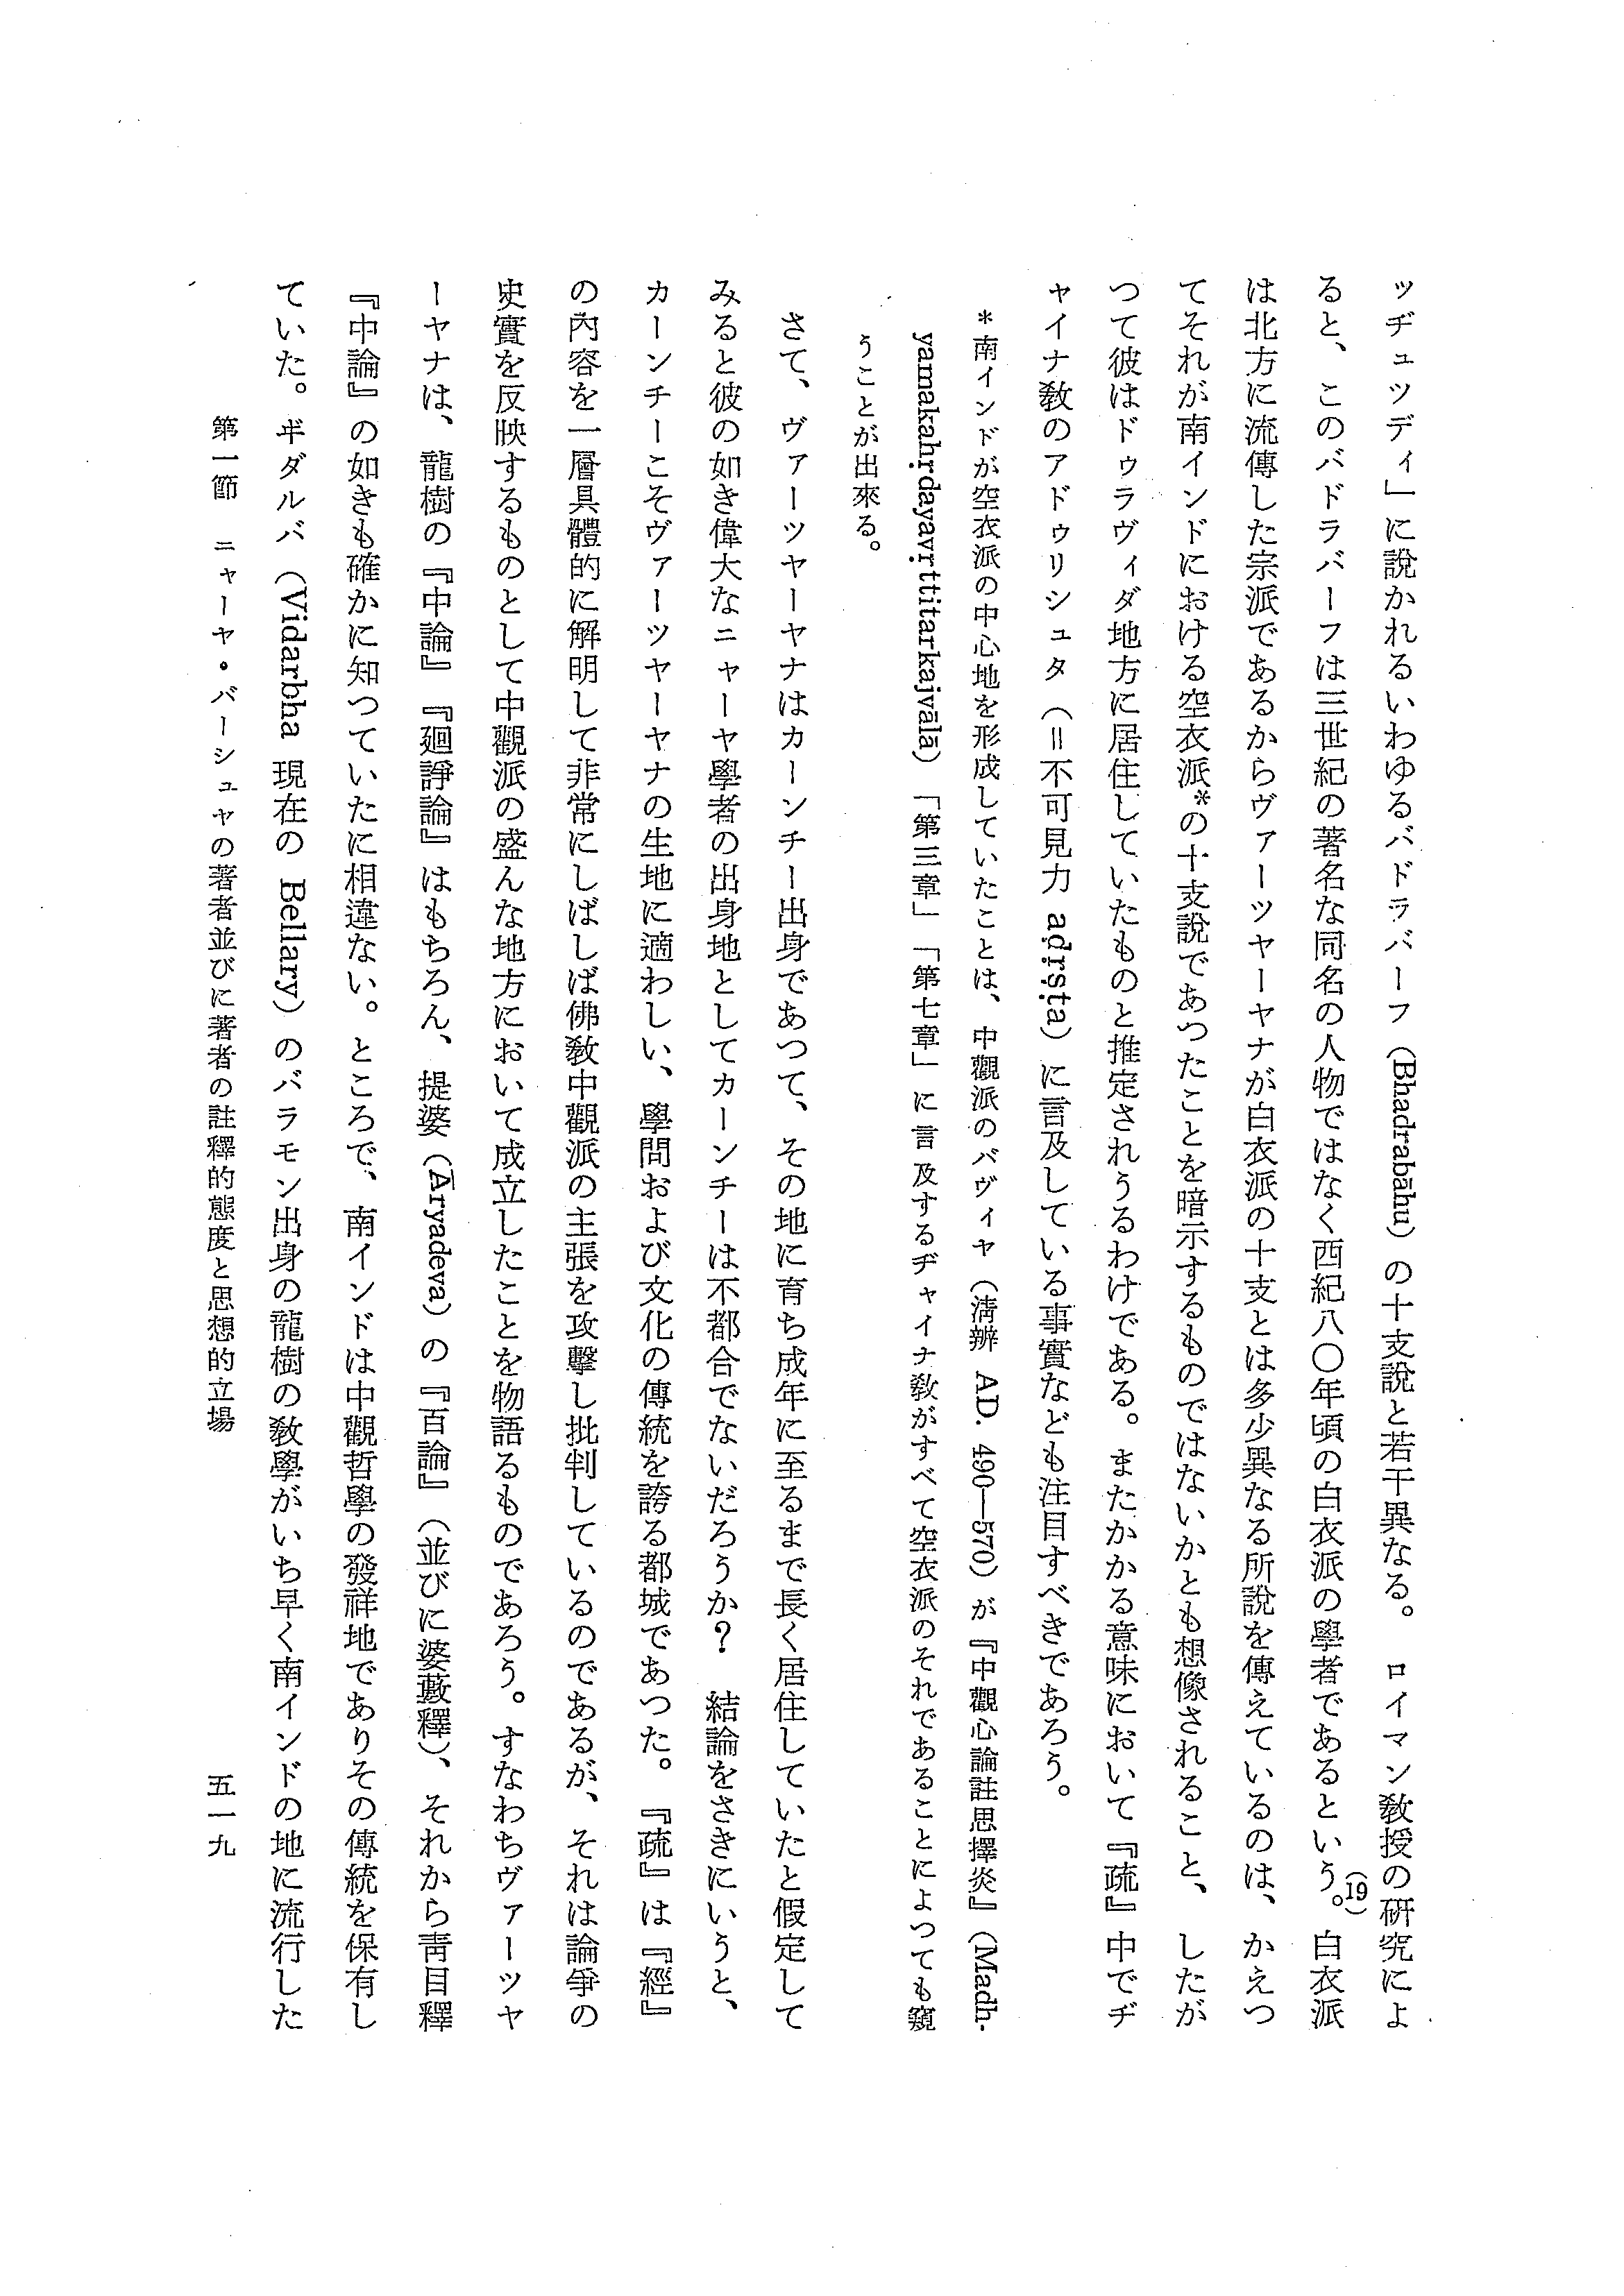 ッヂュツディ」に說かれるいわゆるバドラバーフ（Bhadrabāhu）の十支說と若干異なる。 ロイマン教授の硏究によ
ると、このバドラバーフは三世紀の著名な同名の人物ではなく西紀八〇年頃の白衣派の學者であるという。(19)白衣派
は北方に流傳した宗派であるからヴァーツヤーヤナが白衣派の十支とは多少異なる所說を傳えているのは、かえつ
てそれが南インドにおける空衣派*の十支說であつたことを暗示するものではないかとも想像されること、したが
つて彼はドゥラヴィダ地方に居住していたものと推定されうるわけである。またかかる意味において『疏』中でヂ
ャイナ敎のアドゥリシュタ（＝不可見力 adṛṣṭa）に言及している事實なども注目すべきであろう。
＊南インドが空衣派の中心地を形成していたことは、中觀派のバヴィヤ（淸辨 AD. 490—570）が『中觀心論註思擇炎』（Madh-
yamakahṛdayavṛttitarkajvālā）「第三章」「第七章」に言及するヂャイナ敎がすべて空衣派のそれであることによつても窺
うことが出來る。
さて、ヴァーツヤーヤナはカーンチー出身であつて、その地に育ち成年に至るまで長く居住していたと假定して
みると彼の如き偉大なニャーヤ學者の出身地としてカーンチーは不都合でないだろうか？ 結論をさきにいうと、
カーンチーこそヴァーツヤーヤナの生地に適わしい、學問および文化の傳統を誇る都城であつた。『疏』は『經』
の內容を一層具體的に解明して非常にしばしば佛敎中觀派の主張を攻擊し批判しているのであるが、それは論爭の
史實を反映するものとして中觀派の盛んな地方において成立したことを物語るものであろう。すなわちヴァーツヤ
ーヤナは、龍樹の『中論』『廻諍論』はもちろん、提婆（Āryadeva）の『百論』（並びに婆藪釋）、それから靑目釋
『中論』の如きも確かに知つていたに相違ない。ところで、南インドは中觀哲學の發祥地でありその傳統を保有し
ていた。ヸダルバ（Vidarbha 現在の Bellary）のバラモン出身の龍樹の敎學がいち早く南インドの地に流行した
第一節 ニャーヤ・バーシュヤの著者並びに著者の註釋的態度と思想的立場
五一九